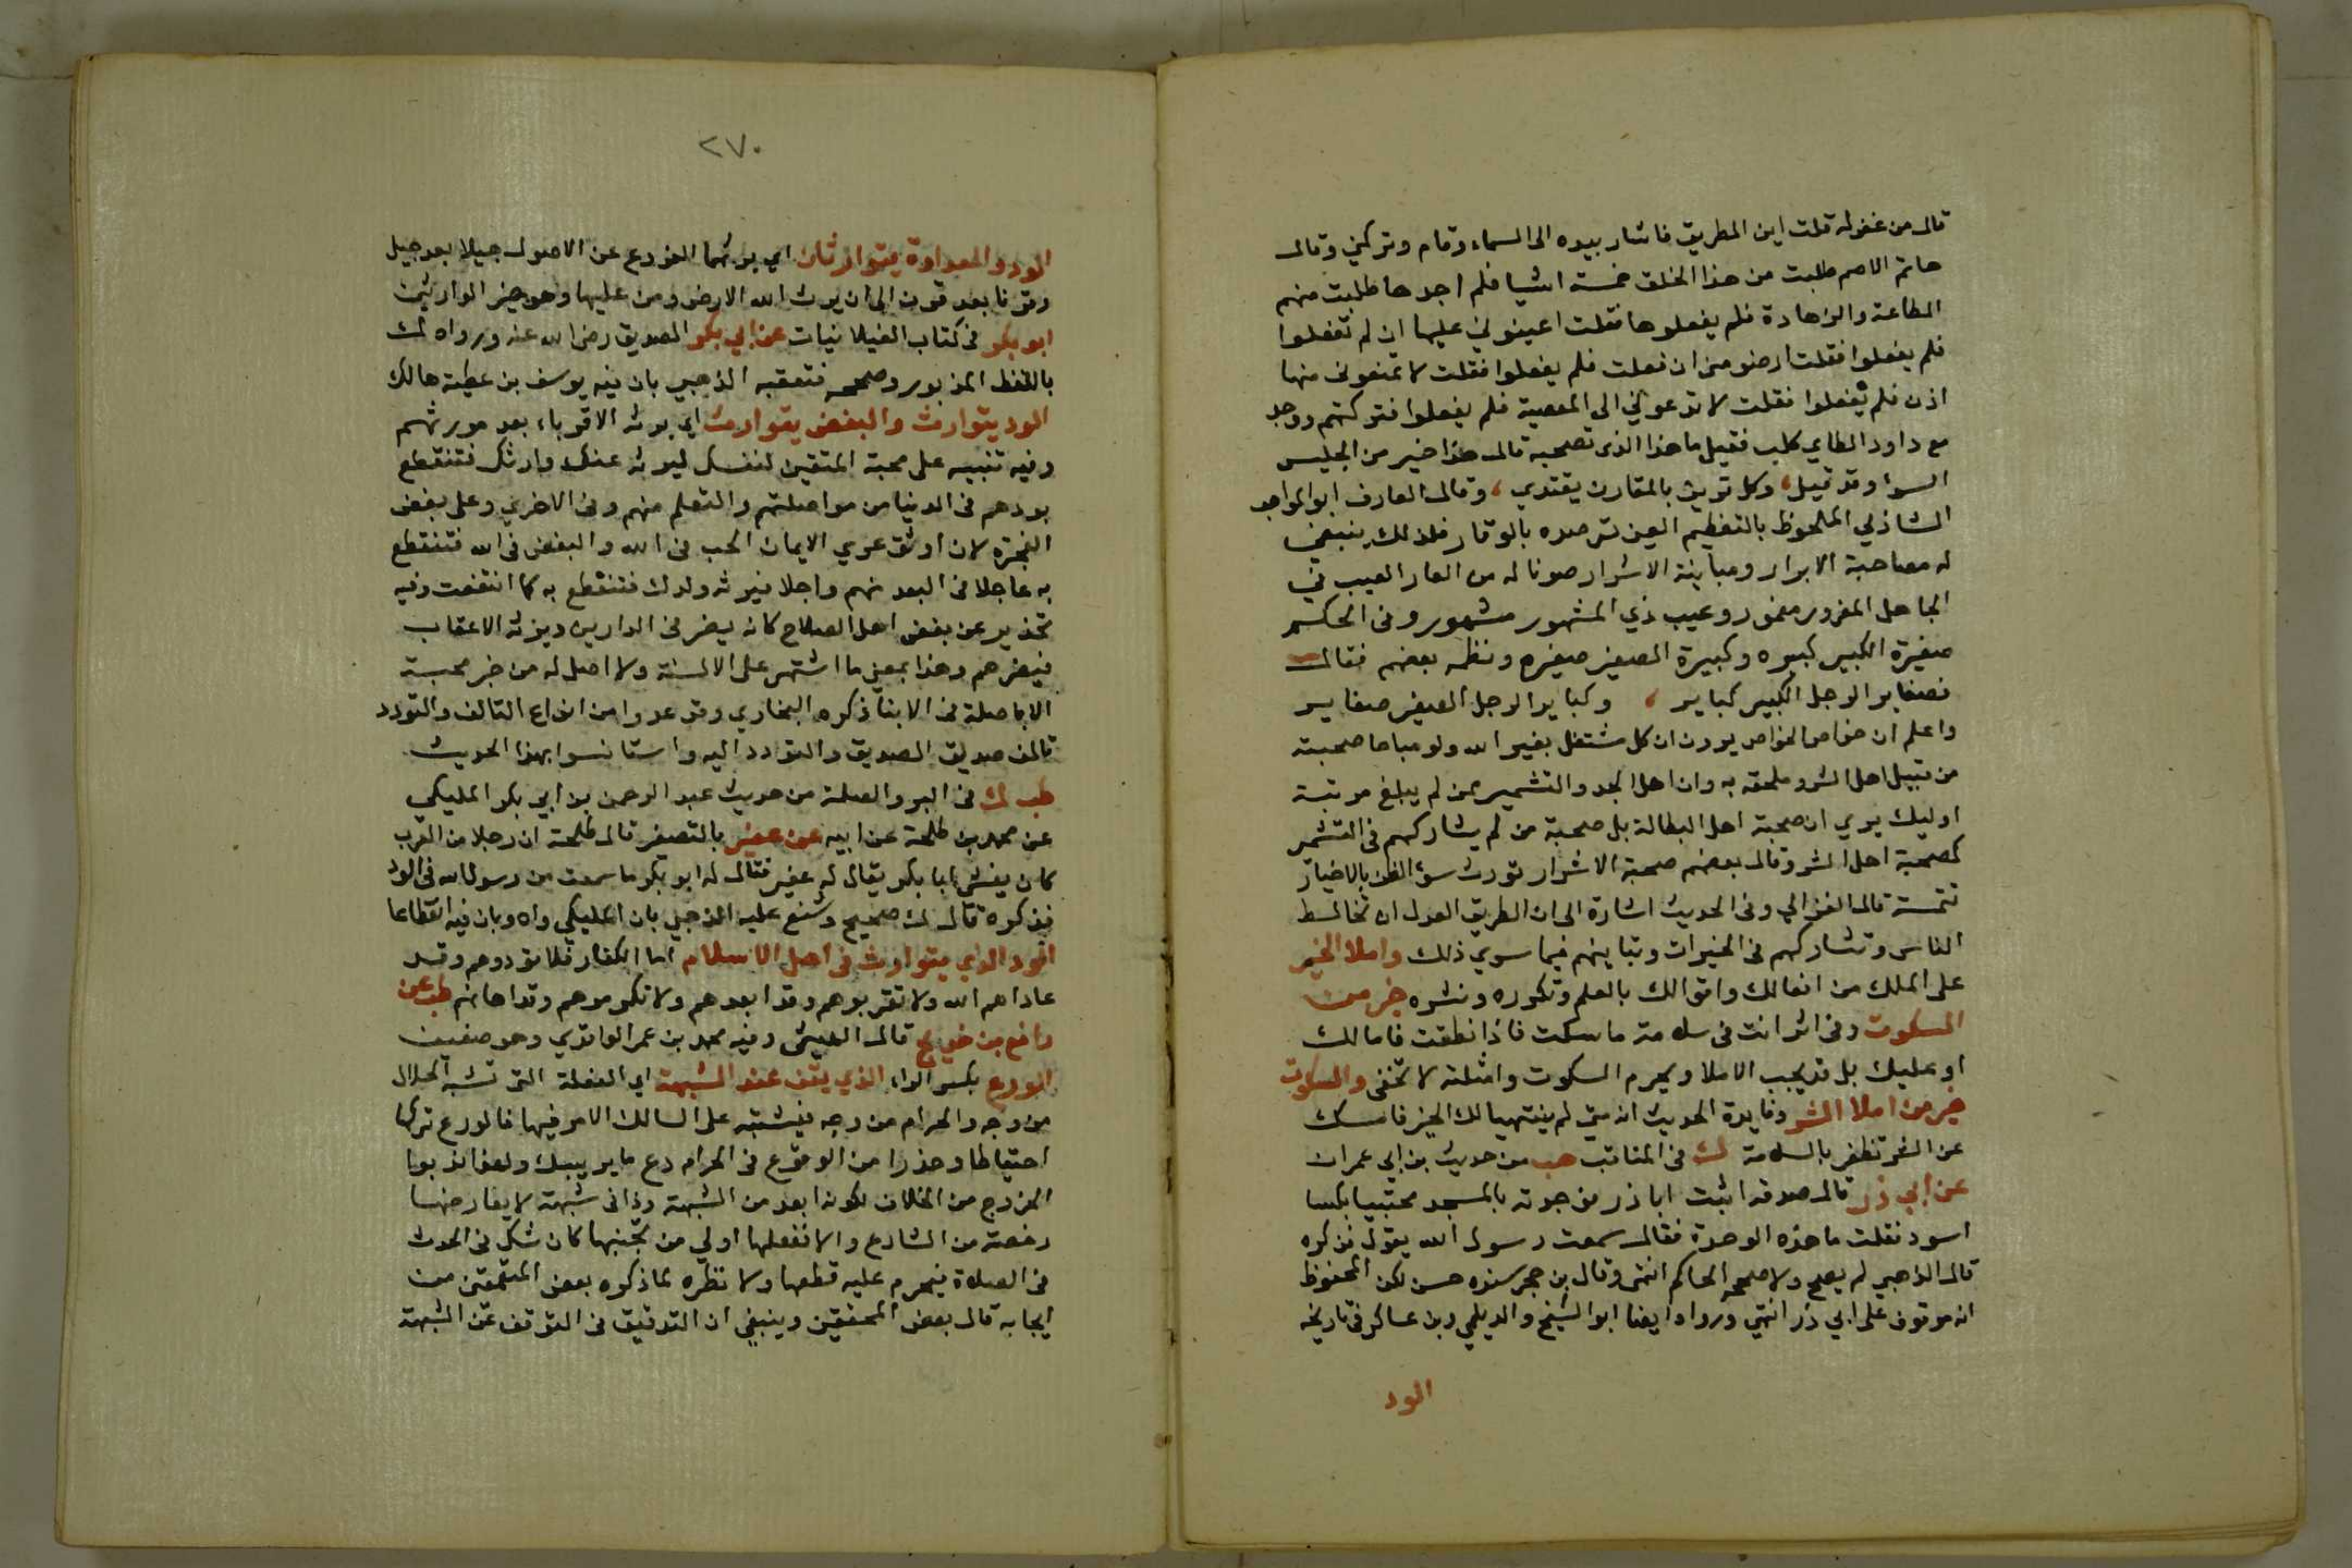 قال من غفوله قلت اين الطريق فاشار بيده الى السماء وقام وتركني وقال
حاتم الاصم طلبت من هذا الخلق خمسة اشيا فلم اجدها طلبت منهم
الطاعة والزهادة فلم يفعلوها فقلت اعينوني عليها ان لم تفعلوا
فلم يفعلوا فقلت ارضوا مني ان فعلت فلم يفعلوا فقلت لا تمنعوني منها
اذن فلم يفعلوا فقلت لا تدعوني الى المعصية فلم يفعلوا فتركتهم ووجد
مع داود الطاي كلب فقيل ما هذا الذي تصحبه قال هذا خير من الجليس
السوا وقد قيل، وكل قرين بالمقارن يقتدي، وقال العارف ابو المواهب
الشاذلي الملحوظ بالتعظيم العين ترصده بالوقار فلذلك ينبغي
له مصاحبة الابرار ومباينة الاشرار صونا له من العار العيب في
الجاهل المغرور مغمور وعيب ذي المشهور مشهور وفي الحكم
صغيرة الكبير كبيره وكبيرة الصغير صغيره ونظمه بعضهم فقال
فصغاير الرجل الكبير كباير ، وكباير الرجل الصغير صغاير
واعلم ان خواص الخواص يرون ان كل مشتغل بغير الله ولو مباحا صحبته
من قبيل اهل الشر وملحقة به وان اهل الجد والتشمير ممن لم يبلغ مرتبة
اوليك يري ان صحبة اهل البطالة بل صحبة من لم يشاركهم في التشمر
كصحبة اهل الشر وقال بعضهم صحبة الاشرار تورث سوء الظن بالاخيار
تتمة قال الغزالي وفي الحديث اشارة الى ان الطريق العدل ان تخالط
الناس وتشاركهم في الخيرات وتباينهم فيما سوي ذلك واملا الخير
على الملك من افعالك واقوالك بالعلم وتكوره ونشره خير من
السكوت وفي اثر انت في سلامة ما سكت فاذا نطقت فاما لك
او عليك بل قد يجب الاملا ويحرم السكوت وامثلته لا تخفى والسكوت
خير من املا الشر وفايدة الحديث انه متى لم يتهيا لك الخير فامسك
عن الشر تظفر بالسلامة ك في المناقب هب من حديث بن ابي عمران
عن ابي ذر قال صدقه اتيت ابا ذر فوجدته بالمسجد محتبيا بكسا
اسود فقلت ما هذه الوحدة فقال سمعت رسول الله يقول فذكره
قال الذهبي لم يصح ولا صححه الحاكم انتهى وقال بن حجر سنده حسن لكن المحفوظ
انه موقوف على ابي ذر انتهي ورواه ايضا ابو الشيخ والديلمي وبن عساكر في تاريخه
الود
٢٧٠
الود والعداوة يتوارثان اي يرثهما الفروع عن الاصول جيلا بعد جيل
وقرنا بعد قرن الى ان يرث الله الارض ومن عليها وهو خير الوارثين
ابو بكر في كتاب الغيلانيات عن ابي بكر الصديق رضى الله عنه ورواه ك
باللفظ المزبور وصححه فتعقبه الذهبي بان فيه يوسف بن عطية هالك
الود يتوارث والبغض يتوارث اي يرثه الاقرباء بعد مورثهم
وفيه تنبيه على محبة المتقين لنفسك ليرثه عنك وارثك فتنقطع
بودهم في الدنيا من مواصلتهم والتعلم منهم وفي الاخري وعلى بغض
الفجرة لان اوثق عري الايمان الحب في الله والبغض في الله فتنقطع
به عاجلا في البعد منهم واجلا فيرثه ولدك فتنقطع به كما انتفعت وفيه
تحذير عن بغض اهل الصلاح كانه يضر في الدارين ويرثه الاعقاب
فيضرهم وهذا بمعنى ما اشتهر على الالسنة ولا اصل له من خبر محبة
الاباصلة في الابنا ذكره البخاري وقد عدوا من انواع التالف والتودد
قالمن صديق الصديق والتودد اليه واستانسوا بهذا الحديث
طب ك في البر والصلة من حديث عبد الرحمن بن ابي بكر المليكي
عن محمد بن طلحة عن ابيه عن عفير بالتصغير قال طلحة ان رجلا من العرب
كان يغشى ابا بكر يقال له عفير فقال له ابو بكر ما سمعت من رسول الله في الود
فذكره قال ك صحيح وشنع عليه الذهبي بان المليكي واه وبان فيه انقطاعا
الود الذي يتوارث في اهل الاسلام اما الكفار فلا تودوهم وقد
عاداهم الله ولا تقربوهم وقد ابعدهم ولا تكرموهم وقد اهانهم طب عن
رافع بن خديج قال الهيثمى وفيه محمد بن عمر الواقدي وهو ضعيف
الورع بكسر الراء الذي يقف عند الشبهة اي الفعلة التي تشبه الحلال
من وجه والحرام من وجه فيشتبه على السالك الامر فيها فالورع تركها
احتياطا وحذرا من الوقوع في الحرام دع ما يريبك ولهذا ندبوا
الخروج من الخلاف لكونه ابعد من الشبهة وذا في شبهة لا يعارضها
رخصة من الشارع والا ففعلها اولي من تجنبها كان شك في الحدث
في الصلاة فيحرم عليه قطعها ولا نظره لما ذكره بعض المتعمقين من
ايجابه قال بعض المحققين وينبغي ان التدقيق في التوقف عن الشبهة